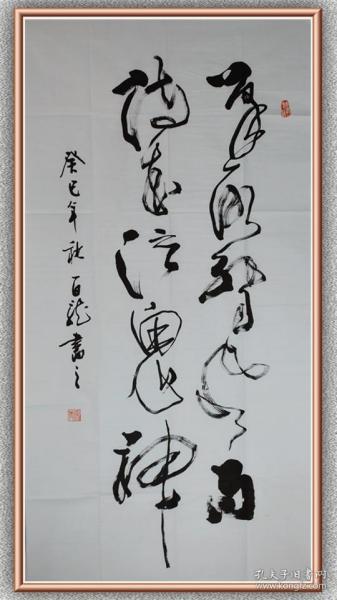 筆落驚風雨
詩成泣鬼神
癸巳年秋百龍書之
孔夫子旧书网
www.kongfz.com